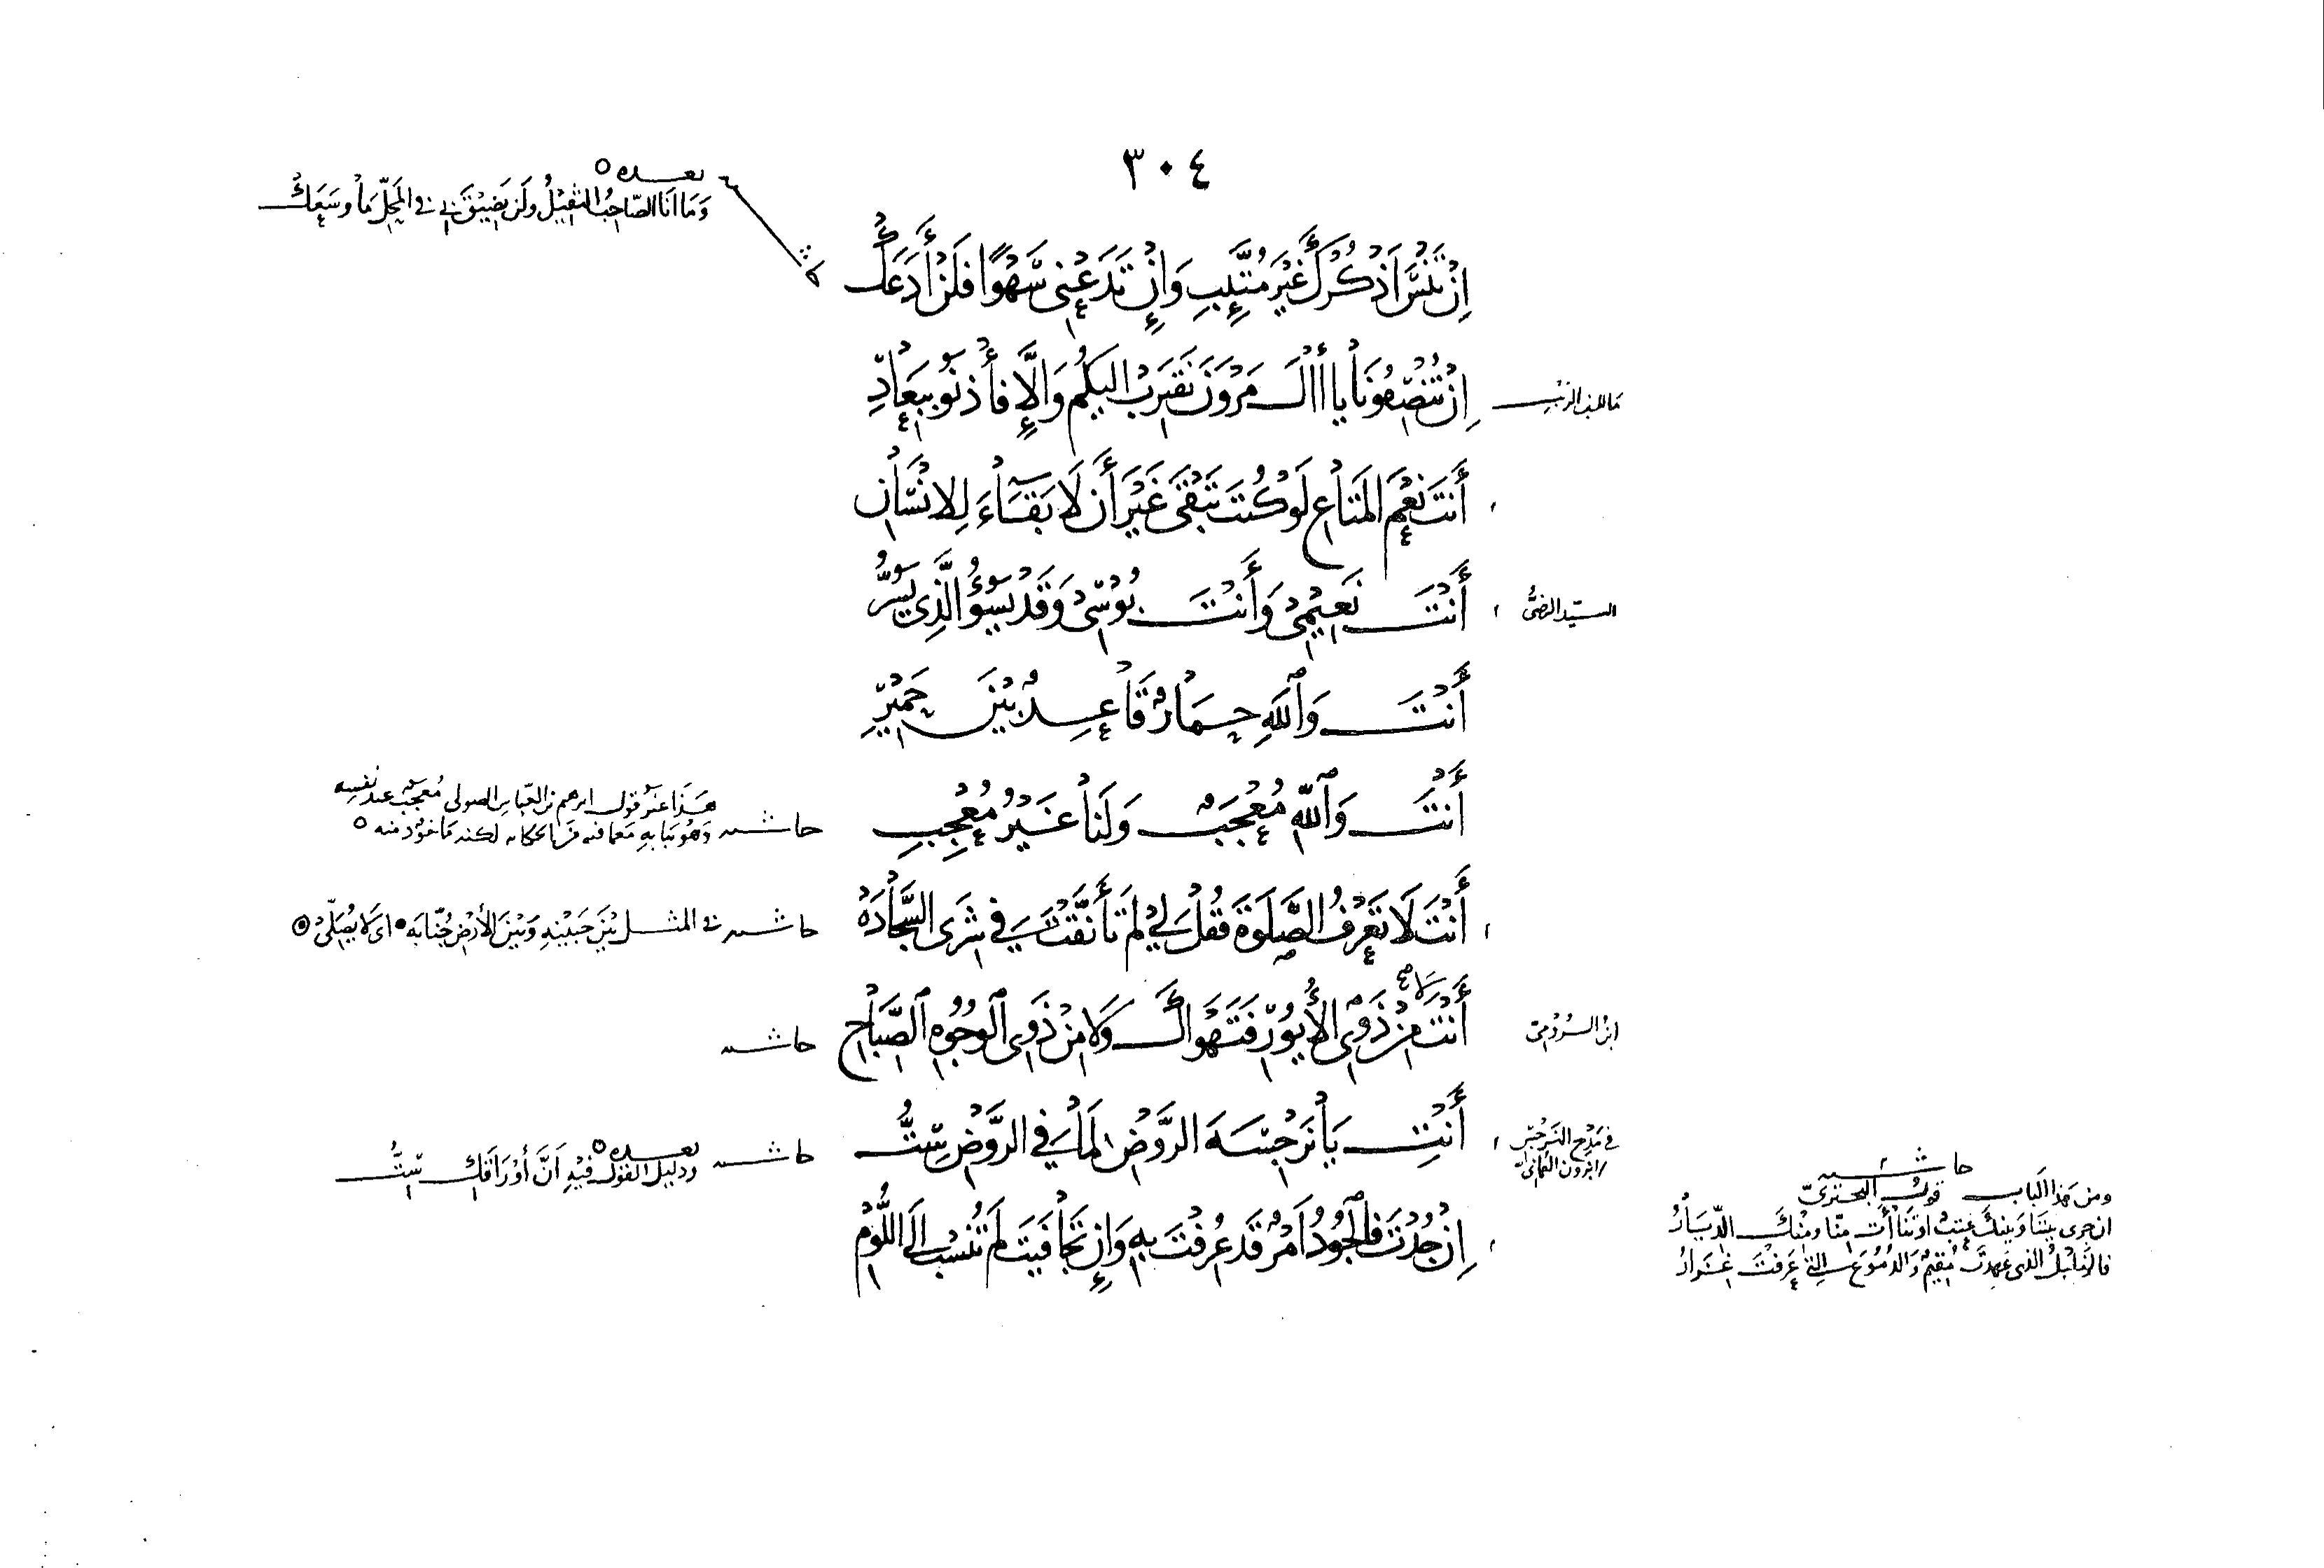 ٣٠٤
بعده ٥
وَمَا أنَا الصَّاحِبُ الثَّقِيْلُ وَلَن يَضِيْقَ بِى فِى الْمَحَلِّ مَا وَسِعَكْ
اِنْ تَنْسَ أَذْكُرْكَ غَيْرَ مُتَّئِبِ وَإِنْ تَدَعْنِى سَهْوًا فَلَنْ أَدَعَكْ
مالك بن الريب
اِنْ تُنْصِفُونَا يا أَالَ مَرْوَنَ نَقْتَرِبْ اليكُم وَإِلَّا فأْذنُوْ ببِعَادِ
أَنتَ نِعْمَ المَتَاع لَوْ كُنتَ تَبْقَى غَيْرَ أَن لَا بَقَاءَ لِلانْسَانِ
السيد الرضىّ
أَنْتَ نَعِيْمِىْ وَأَنْتَ بُوْسِىْ وَقَدْ يَسُوْؤُ الَّذِى يَسُرُّ
أَنْتَ وَاللّهِ حِمَارٌ قَاعِدٌ بَيْنَ حَمِيْرِ
أَنْتَ وَاللّهِ مُعْجَبٌ وَلَنَا غَيْرُ مُعْجِبِ
حاشيه
هَذَا عَنَرٌ قول ابرهيم بن العَبَّاس الصولى مُعْجَبٌ عند نفسِه
لكنه مَاخوْذ منه ٥
أَنْتَ لَا تَعْرِفُ الصَّلَوةَ فَقُلْ لِىْ لِمَ تَأَنَّقْتَ فِى شِرَى السَّجَّادَهْ
حاشيه فى المثل بَيْنَ جَبِيْنِهِ وَبَيْنَ الأَرْضِ جِنَايَه ٥ اى لَا يُصَلِّىْ
ابن الرُّوْمىّ
أَنْتَ لا مِنْ ذَوِى الأُيُوْرِ فَتَهْوَاكَ وَلَا مِنْ ذَوِى الوجُوْهِ الصِّبَاحِ
حاشيه
فى مَدْح النَّرْجِسْ
لابزون العُمَانىّ
أَنْتِ يَا نَرْجِسَةَ الرَّوْضِ لِمَا فِى الرَّوْضِ سِتُّ
حاشيه بعده ٥
ودليل القول فِيْهِ أَنَّ أَوْرَاقَكِ سِتُّ
اِنْ جُدْتَ فالْجُوْدُ اَمْرٌ قَد عُرِفْتَ بِهِ وَإِن تَجَافَيْتَ لَم تُنْسَبْ اِلَى اللُّوْمِ
حاشيه
ومن هَذا البَاب قول البحترىّ
ان جرى بيننَا وَبينكَ عَتبٌ او تَنَأَتْ مِنّا ومنْكَ الدِّيَارُ
فالْغَلِيْلُ الذى عَهِدْتَ مُقِيْمٌ وَالدُّمُوْعُ التى عَرَفْتَ غِزَارُ